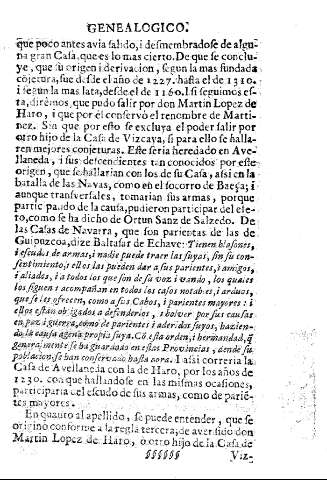 GENEALOGICO.
que poco antes avia salido, i desmembradose de algu-
na gran Casa, que es lo mas cierto. De que se conclu-
ye, que su origen i derivacion, segun la mas fundada
cojetura, fue desde el año de 1227. hasta el de 1310.
i segun la mas lata, desde el de 1160. I si seguimos es-
ta, dirèmos, que pudo salir por don Martin Lopez de
Haro, i que por èl conservò el renombre de Marti-
nez. Sin que por esto se excluya el poder salir por
otro hijo de la Casa de Vizcaya, si para ello se halla-
ren mejores conjeturas. Este seria heredado en Ave-
llaneda, i sus descendientes tan conocidos por este
origen, que se hallarian con los de su Casa, assi en la
batalla de las Navas, como en el socorro de Baeça; i
aunque transversales, tomarian sus armas, porque
participando de la causa, pudieron participar del efe-
to, como se ha dicho de Ortun Sanz de Salzedo. De
las Casas de Navarra, que son parientes de las de
Guipuzcoa, dize Baltasar de Echave: Tienen blasones,
i escudos de armas, i nadie puede traer las suyas, sin su con-
sentimiento, i ellos las pueden dar a sus parientes, i amigos,
i aliados, i a todos los que son de su voz i vando, los quales
los siguen i acompañan en todos los casos notables, i arduos,
que se les ofrecen, como a sus Cabos, i parientes mayores: i
ellos estàn obligados a defenderlos, i bolver por sus causas
en paz i guerra, como de parientes i aderidos suyos, hazien-
do la causa agena propia suya. Cõ esta orden, i hermandad, q̃
generalmente se ha guardado en estas Provincias, desde su
poblacion, se han conservado hasta aora. I assi correria la
Casa de Avellaneda con la de Haro, por los años de
1230. con que hallandose en las mismas ocasiones,
participaria del escudo de sus armas, como de parie-
tes mayores.
En quanto al apellido, se puede entender, que se
originò conforme a la regla tercera, de aver sido don
Martin Lopez de Haro, ò otro hijo de la Casa de
§§§§§§ Viz-